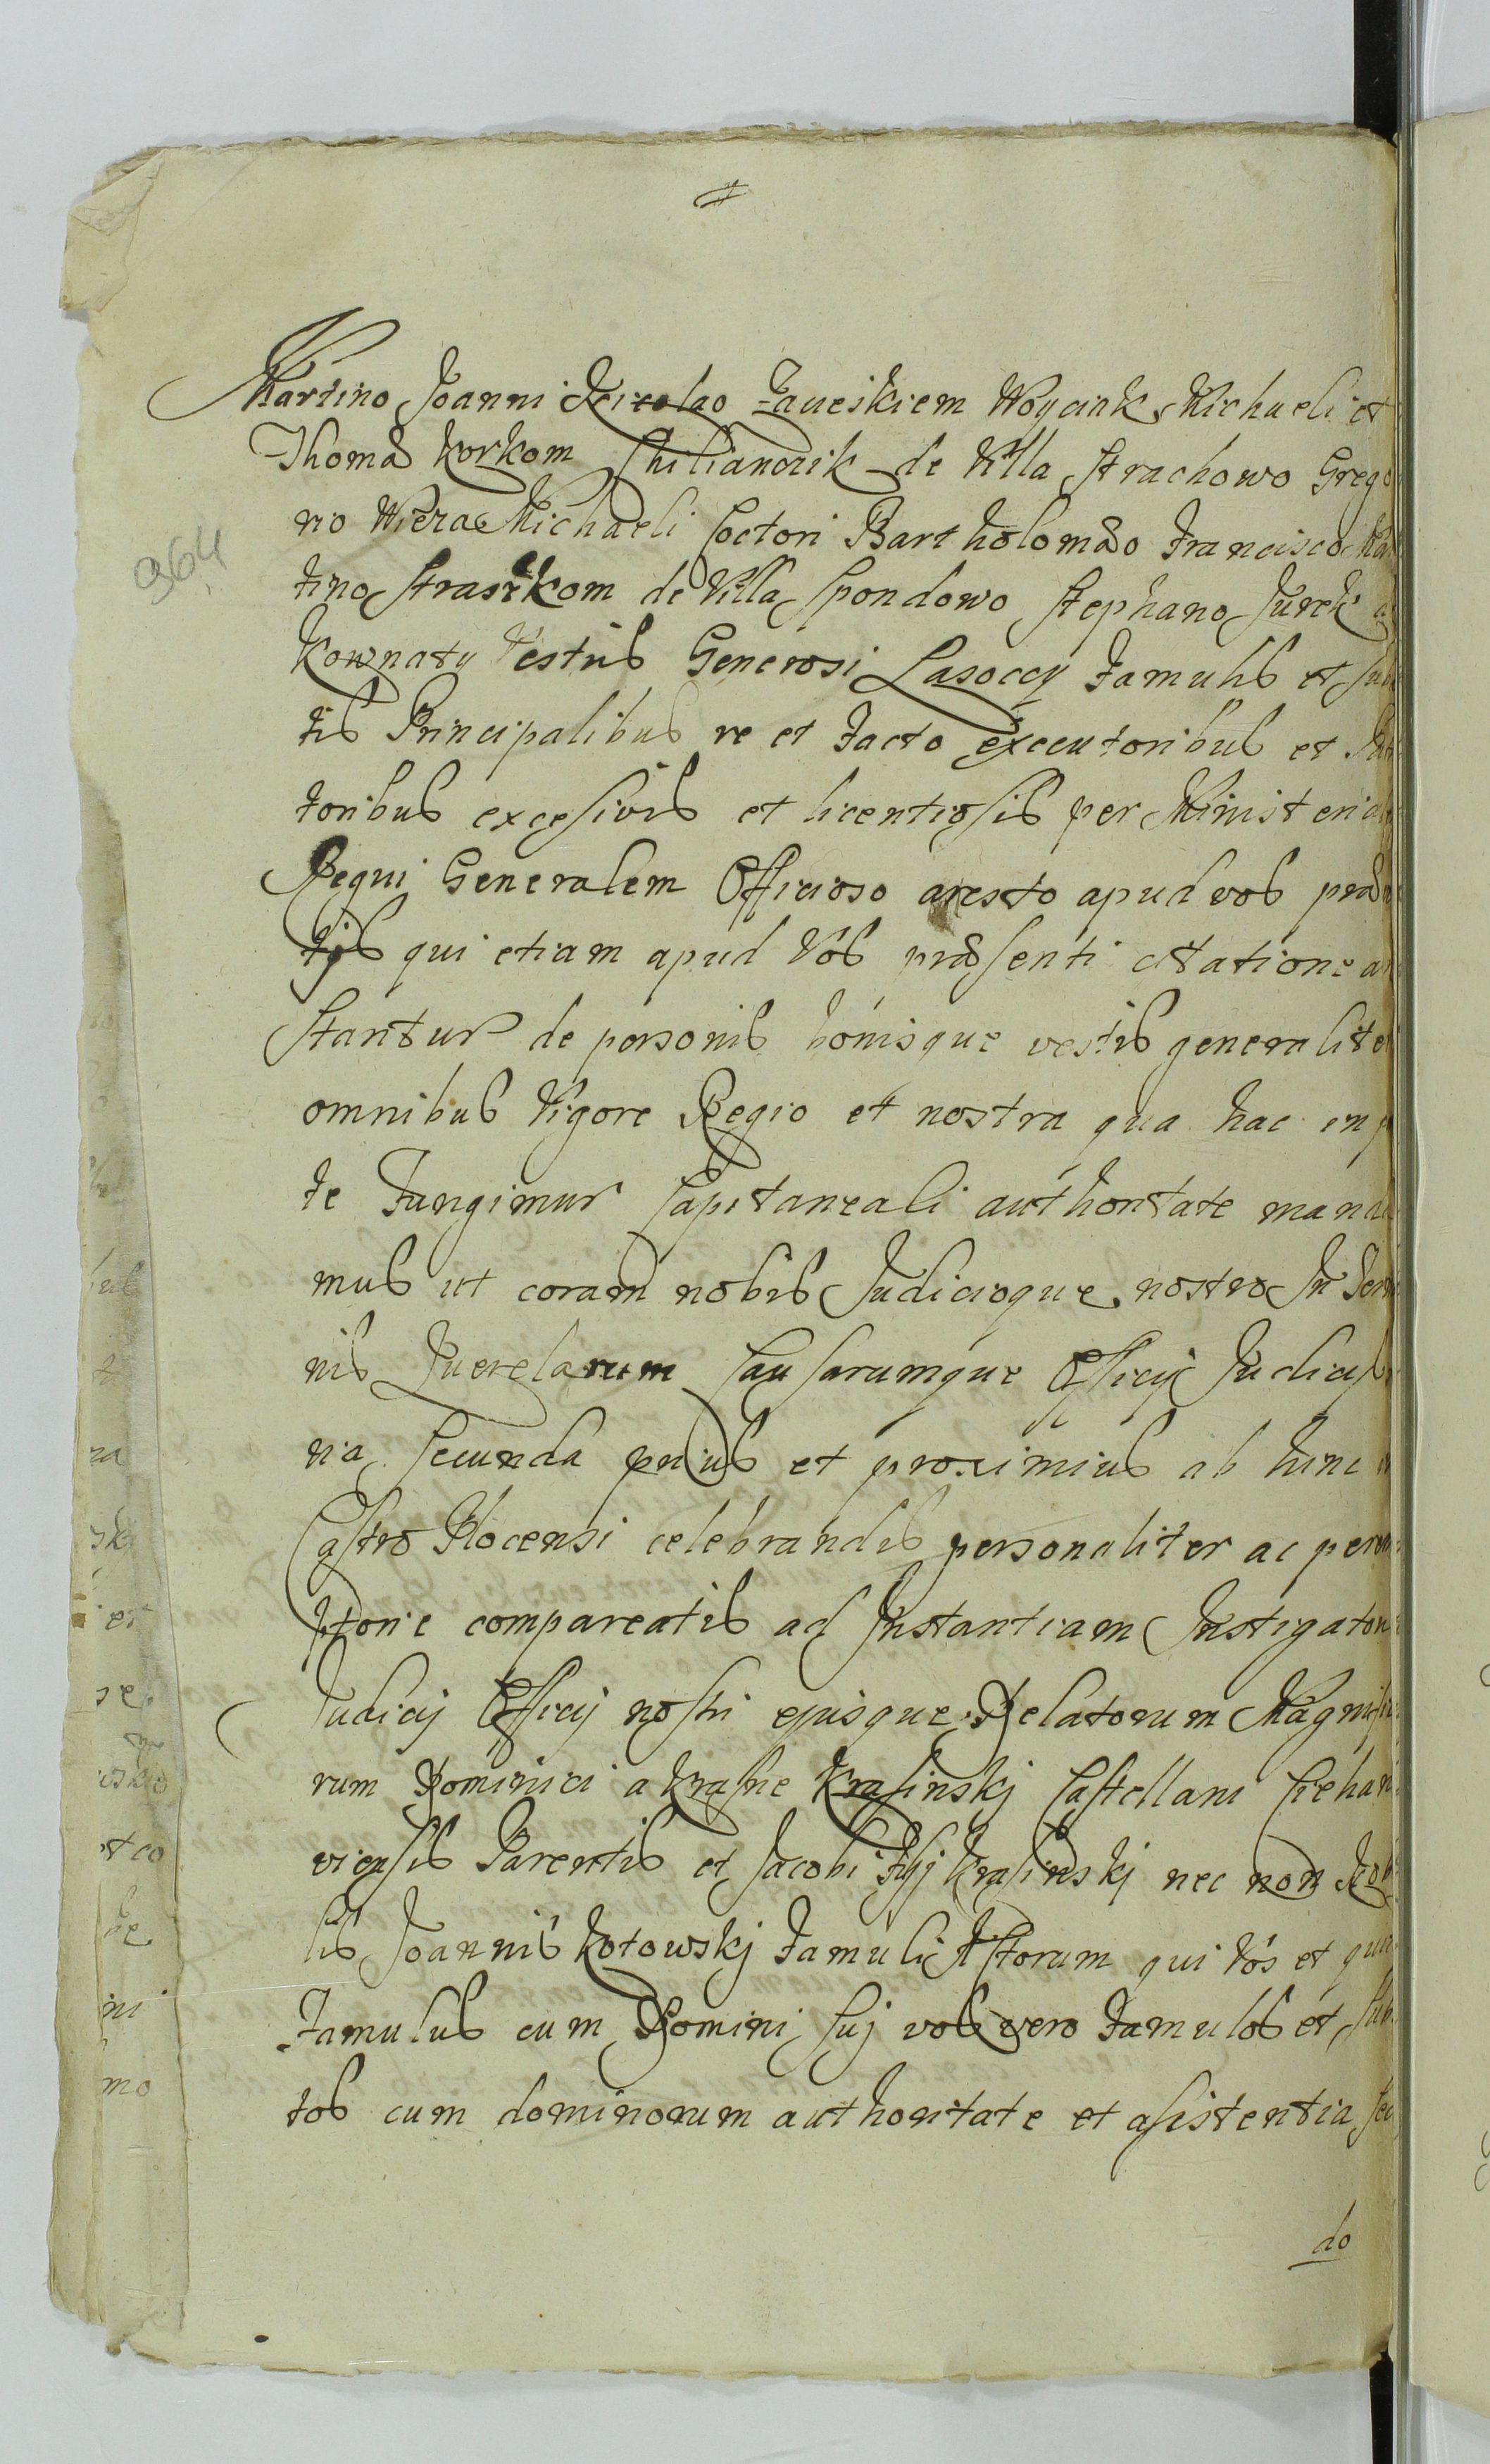 Martino Joanni Nicolao Faueikiem Woyciak Michaeli et
Thomæ Korkom de Villa Strachowo Grego
rio Wiera Michaeli Coctori Bartholomæo Francisco Mar
tino Straszkom de Villa Spondowo Stephano Jurek
Kownaty Vestris Generosi Lasoccy Famulis et Sub
tis Principalibus re et Facto executoribus et
toribus excesivis et licentiosis per Ministeria
Regni Generalem Officioso aresto apud vos præ
tijs qui etiam apud Vos præsenti citatione a
stantur de personis bonisque vestris generaliter
omnibus Vigore Regio et nostra qua hac in p
te Fungimur Capitaneali authoritate manda
mus ut coram nobis Judicioque nostro In Ter
nis Querelarum Causarumque Officij Judicij
ria secunda prius et proximius ab hinc
Castro Plocensi celebrandis personaliter ac perem
ptorie compareatis ad Instantiam Instigatoris
Judicij Officij nostri ejusque Delatorum Magnifico
rum Dominici a Krasne Krasinskj Castellani Ciehan
viensis Parentis et Jacobi Filij Krasinskj nec non Nobi
lis Joannis Kotowskj Famuli Actorum qui Vos et qua
Famulus cum Domini Suj vos vero Famulos et Sub
tos cum dominorum authoritate et asistentia
do
964